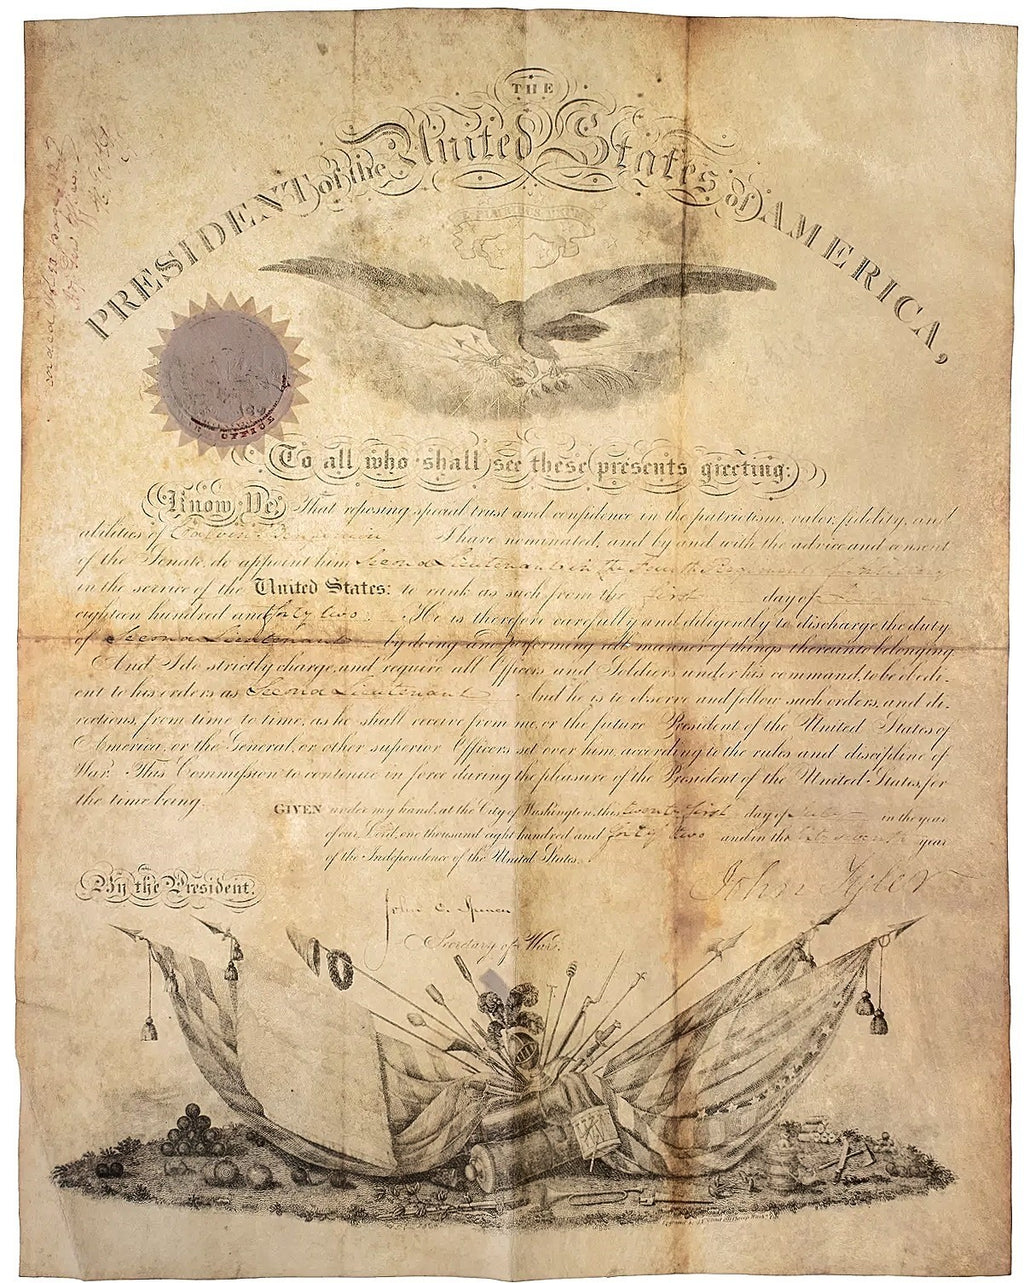 THE
PRESIDENT of the United States of AMERICA,
E PLURIBUS UNUM
OFFICE
To all who shall see these presents greeting:
Know Ye, That reposing special trust and confidence in the patriotism, valor, fidelity, and
abilities of Calvin Benjamin I have nominated, and by and with the advice and consent
of the Senate, do appoint him Second Lieutenant in the Fourth Regiment of Artillery
in the service of the United States: to rank as such from the first day of
eighteen hundred and forty two. He is therefore carefully and diligently to discharge the duty
of Second Lieutenant by doing and performing all manner of things thereunto belonging.
And I do strictly charge, and require all Officers and Soldiers under his command, to be obedi-
ent to his orders as Second Lieutenant And he is to observe and follow such orders, and di-
rections, from time to time, as he shall receive from me, or the future President of the United States of
America, or the General, or other superior Officers set over him, according to the rules and discipline of
War. This Commission to continue in force during the pleasure of the President of the United States, for
the time being.
GIVEN under my hand, at the City of Washington, this twenty first day of July in the year
of our Lord, one thousand eight hundred and forty two and in the sixty seventh year
of the Independence of the United States.
John Tyler
By the President.
John C. Spencer
Secretary of War.